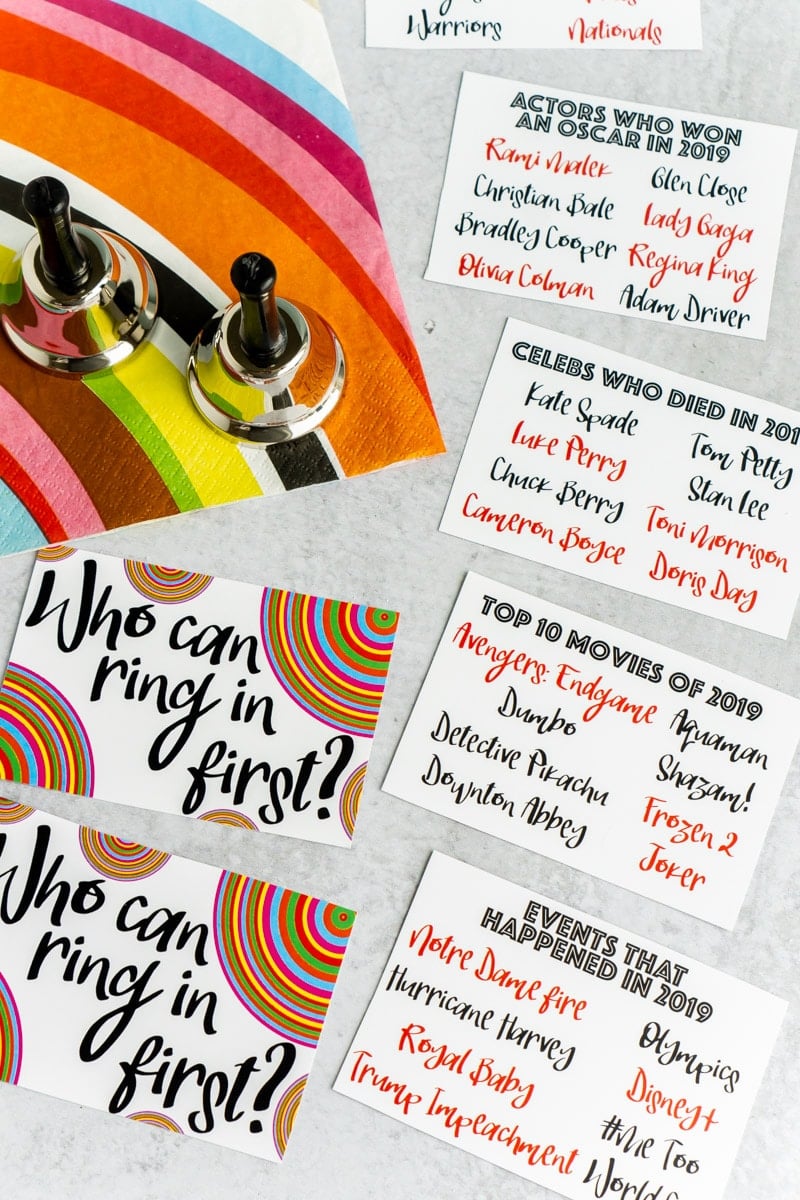 Warriors
Nationals
ACTORS WHO WON
AN OSCAR IN 2019
Rami Malek
Glen Close
Christian Bale
Lady Gaga
Bradley Cooper
Regina King
Olivia Colman
Adam Driver
CELEBS WHO DIED IN 201
Kate Spade
Tom Petty
Luke Perry
Stan Lee
Chuck Berry
Toni Morrison
Cameron Boyce
Doris Day
TOP 10 MOVIES OF 2019
Avengers: Endgame
Aquaman
Dumbo
Shazam!
Detective Pikachu
Frozen 2
Downton Abbey
Joker
EVENTS THAT
HAPPENED IN 2019
Notre Dame fire
Olympics
Hurricane Harvey
Disney+
Royal Baby
#Me Too
Trump Impeachment
World
Who can
ring in
first?
Who can
ring in
first?